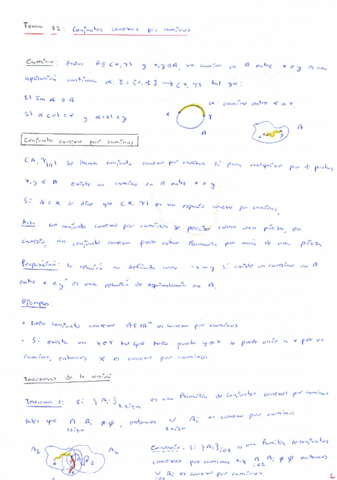 Tema 12: Conjuntos conexos por caminos
Camino: dados A ⊆ (X, τ) y x, y ∈ A, un camino en A entre x e y es una
aplicación continua α: I = [0,1] → (X, τ) tal que:
1) Im α ⊆ A
2) α(0) = x y α(1) = y
α camino entre x e y.
x
y
A
A
Conjunto conexo por caminos
(A, τ|A) se llama conjunto conexo por caminos si para cualquier par de puntos
x, y ∈ A existe un camino en A entre x e y.
Si A = X se dice que (X, τ) es un espacio conexo por caminos.
un conjunto conexo por caminos se percibe como una pieza, sin
un conjunto conexo puede estar formado por más de una pieza
Proposición: la relación definida como "x ~ y si existe un camino en A
entre x e y" es una relación de equivalencia en A.
Ejemplos:
• Todo conjunto convexo A ⊆ ℝⁿ es conexo por caminos
• Si existe un x ∈ X tal que todo punto y ∈ X se puede unir a x por un
camino, entonces X es conexo por caminos
Teoremas de la unión
Teorema 1: Si {Ai} es una familia de conjuntos conexos por caminos
tales que ∩ Ai ≠ φ, entonces ∪ Ai es conexo por caminos
Corolario: Si {Ai} es una familia de conjuntos
conexos por caminos ∩ Ai ≠ φ entonces
∪ Ai es conexo por caminos.